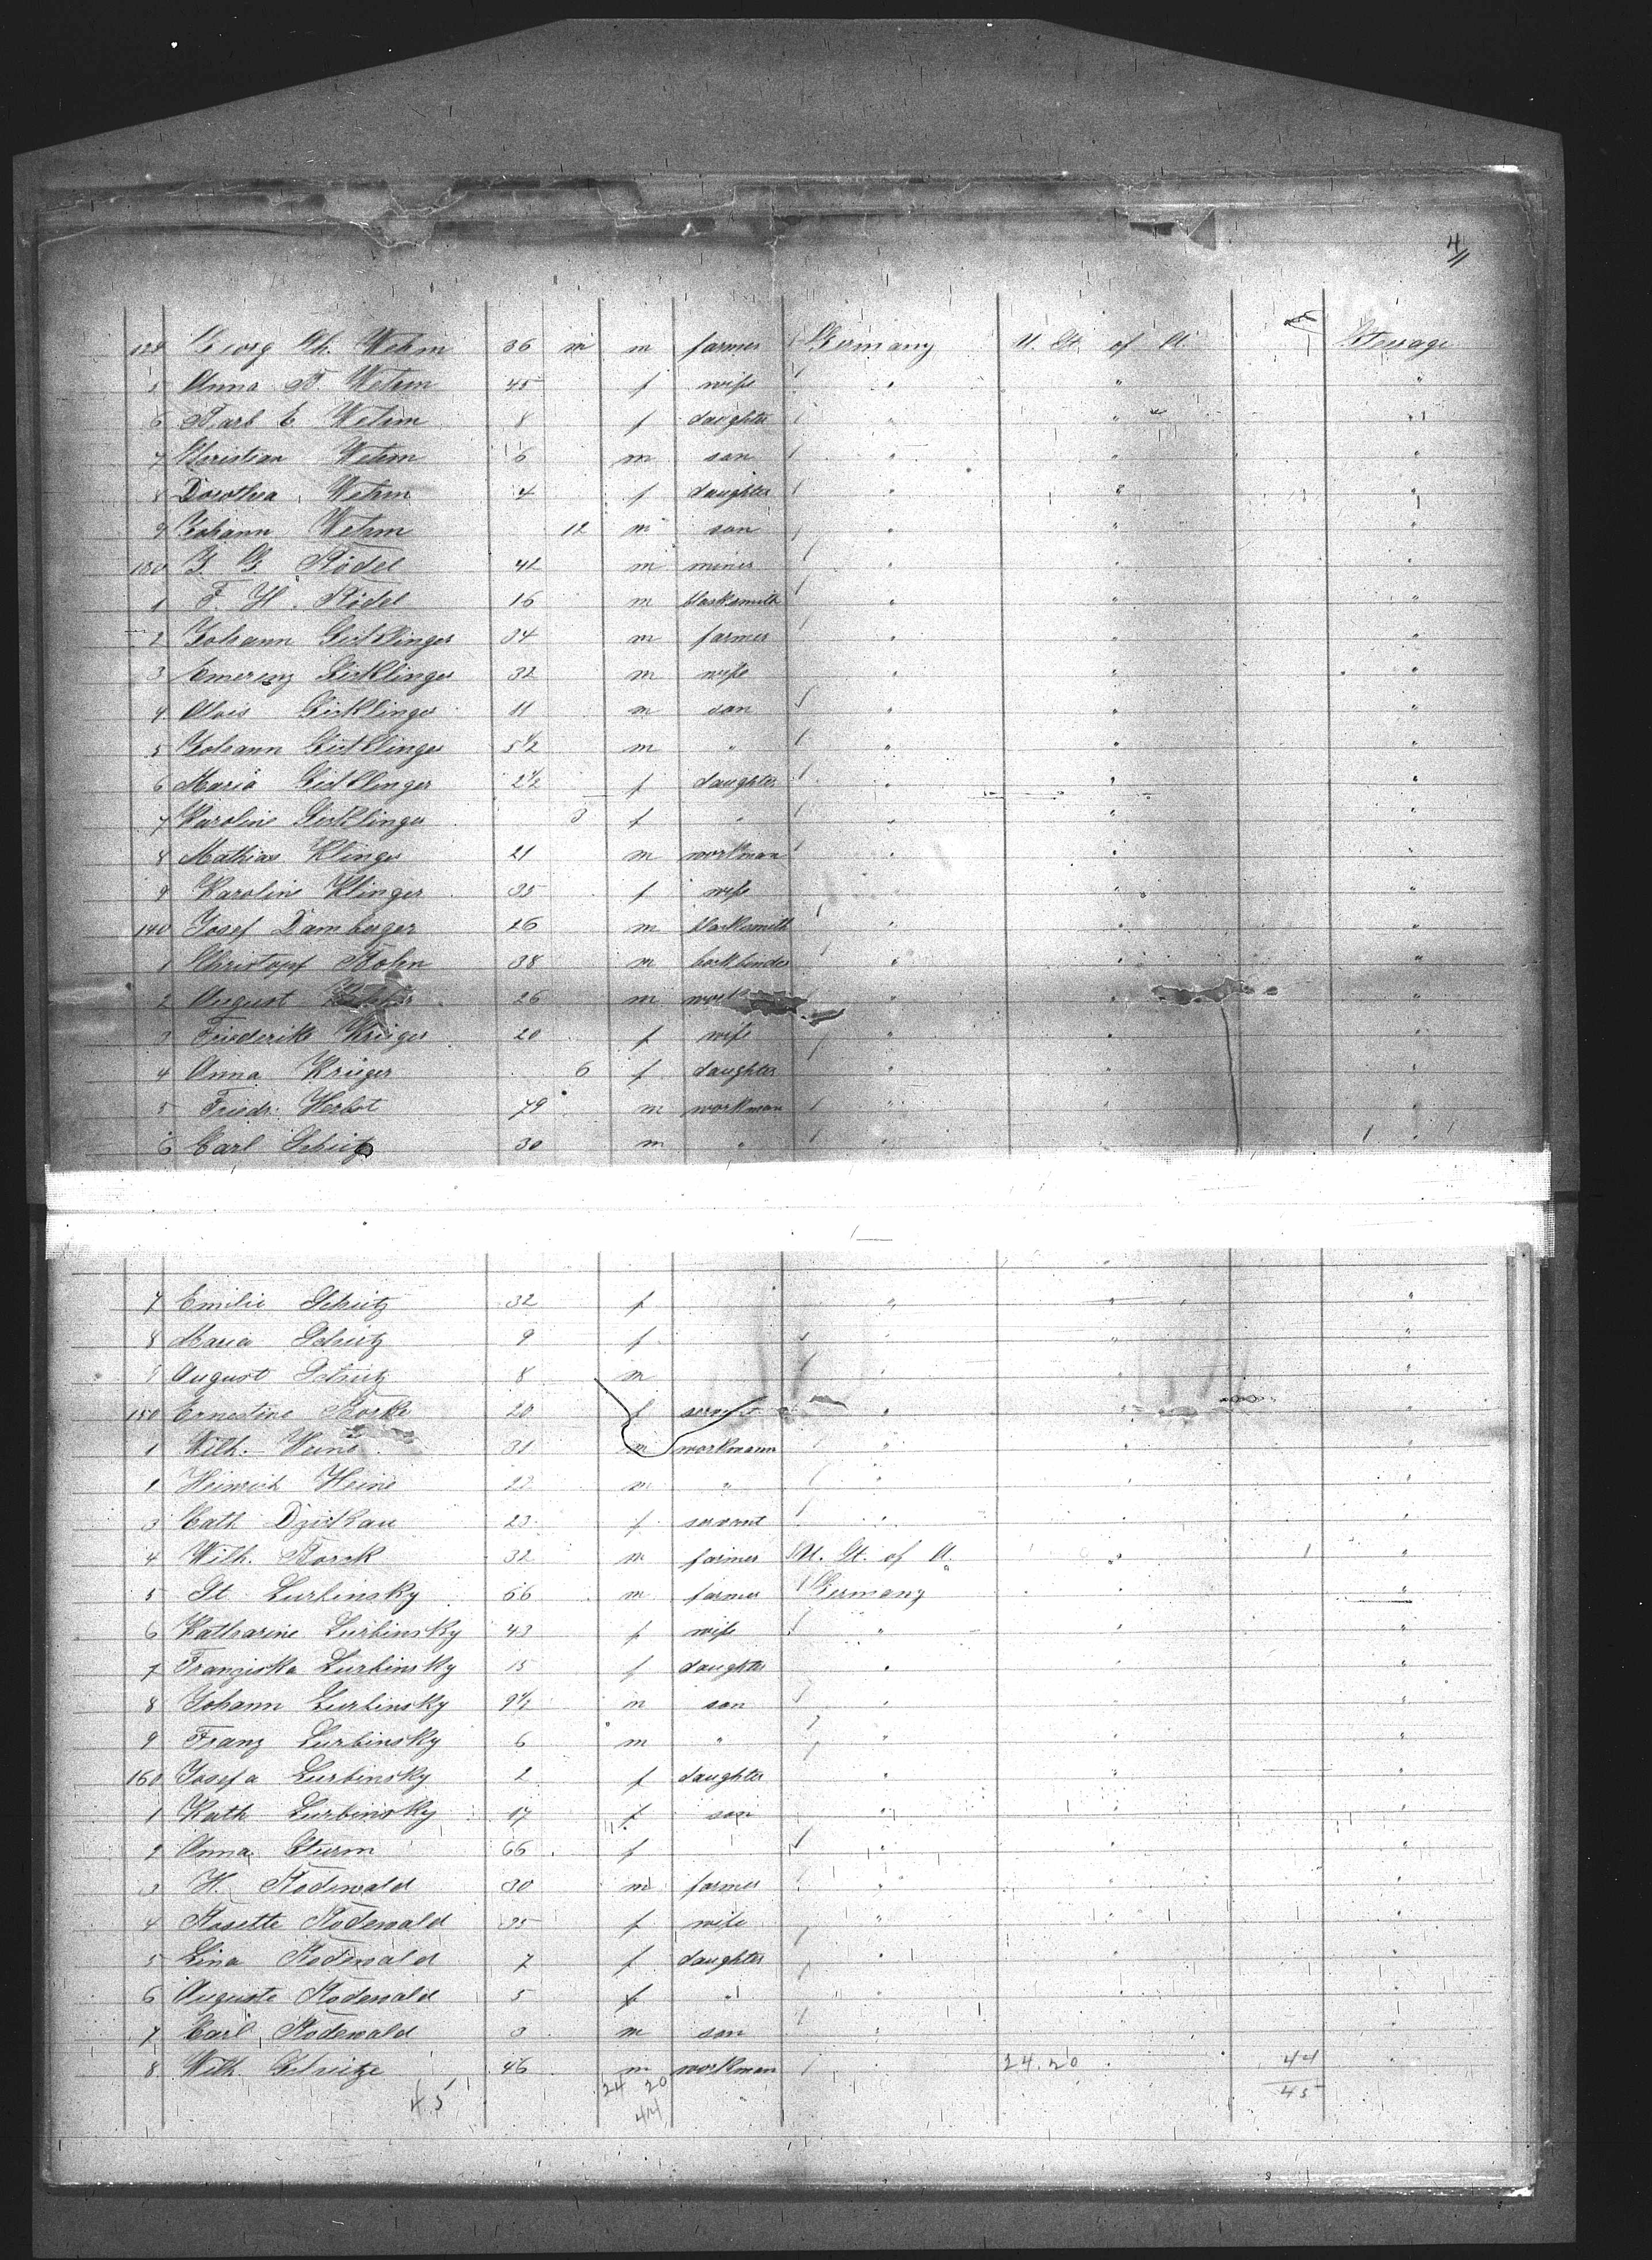 4
124 Georg Ch. Wehm 36 m m farmer Germany U. St. of A. Steerage
5 Anna B Wehm 45 f wife " " "
6 Barb E Wehm 8 f daughter " " "
7 Christian Wehm 6 m son " " "
8 Dorothea Wehm 4 f daughter " " "
9 Johann Wehm 12 m son " " "
130 J. G. Rödel 42 m miner " " "
1 F. H. Rödel 16 m blacksmith " " "
2 Johann 34 m farmer " " "
3 Emerenz 32 m wife " " "
4 Alois 11 m son " " "
5 Johann 5 1/2 m " " " "
6 Maria 2 1/2 f daughter " " "
7 Karoline 3 f " " " "
8 Mathias Klinger 21 m workman " " "
9 Karoline Klinger 35 f wife " " "
140 Josef Damberger 26 m blacksmith " " "
1 Christopf 38 m bookbinder " " "
2 August 26 m work " " "
3 Friederike Krüger 20 f wife " " "
4 Anna Krüger 6 f daughter " " "
5 Friedr. Herbst 79 m workman " " "
6 Carl Schütz 30 m " " "
7 Emilie Schütz 32 f " " "
8 Maria Schütz 9 f " " "
9 August Schütz 8 m " " "
150 Ernestine 20 f servant " " "
1 Wilh. Heine 31 m workmann " " "
Heinrich Heine 22 m " " " "
3 Cath 23 f servant " " "
4 Wilh. Storck 32 m farmer U. St. of A. " 1 "
5 St. Lurbinsky 56 m farmer Germany " "
6 Katharine Lurbinsky 43 f wife " " "
7 Franziska Lurbinsky 15 f daughter " " "
8 Johann Lurbinsky 9 1/2 m son " " "
9 Franz Lurbinsky 6 m " " " "
160 Josefa Lurbinsky 2 f daughter " " "
1 Kath Lurbinsky 17 f son " " "
2 Anna Sturm 66 f " " "
3 H. Rodewald 30 m farmer " " "
4 Rosette Rodewald 35 f wife " " "
5 Lina Rodewald 7 f daughter " " "
6 Auguste Rodewald 5 f " " " "
7 Carl Rodewald 3 m son " " "
8 Wilh. Schütze 46 m workman " 24.20 44 "
45 24 20 45
44